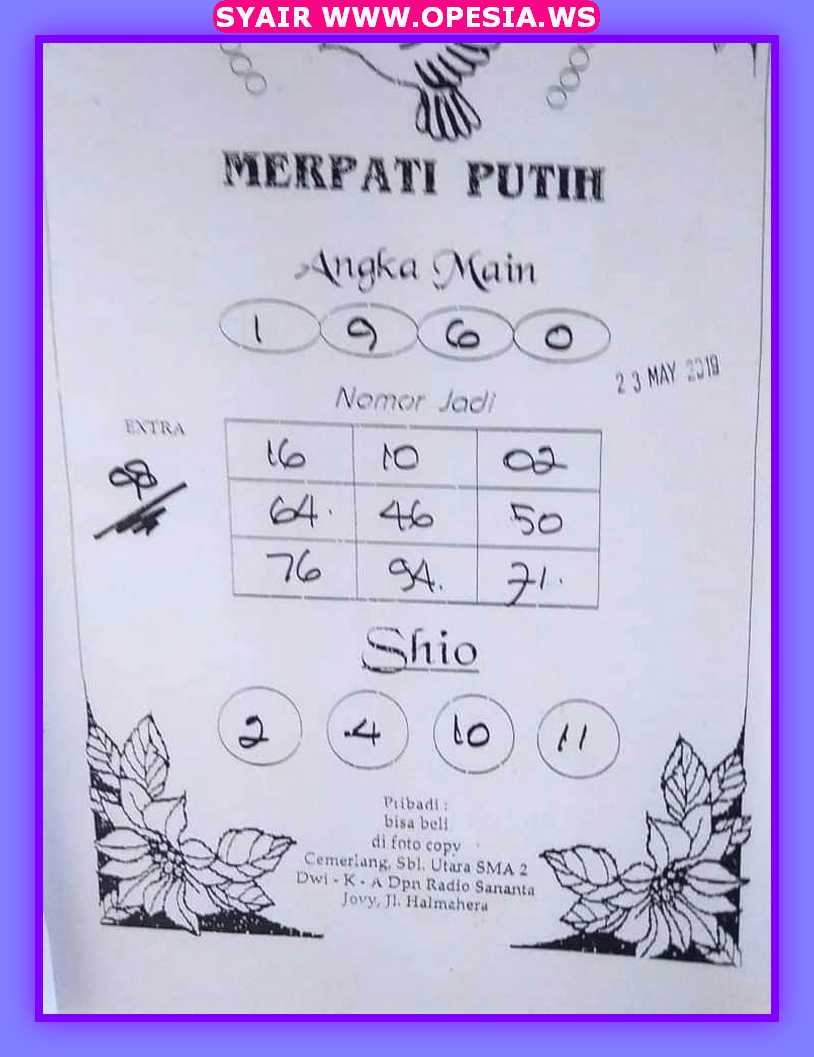 SYAIR WWW.OPESIA.WS
MERPATI PUTIH
Angka Main
1 9 6 0
23 MAY 2019
Nomor Jadi
EXTRA
16 10 02
08
64. 46 50
76 94. 71.
Shio
2 .4 10 11
Pribadi :
bisa beli
di foto copy
Cemerlang, Sbl. Utara SMA 2
Dwi - K - A Dpn Radio Sananta
Jovy, Jl. Halmahera